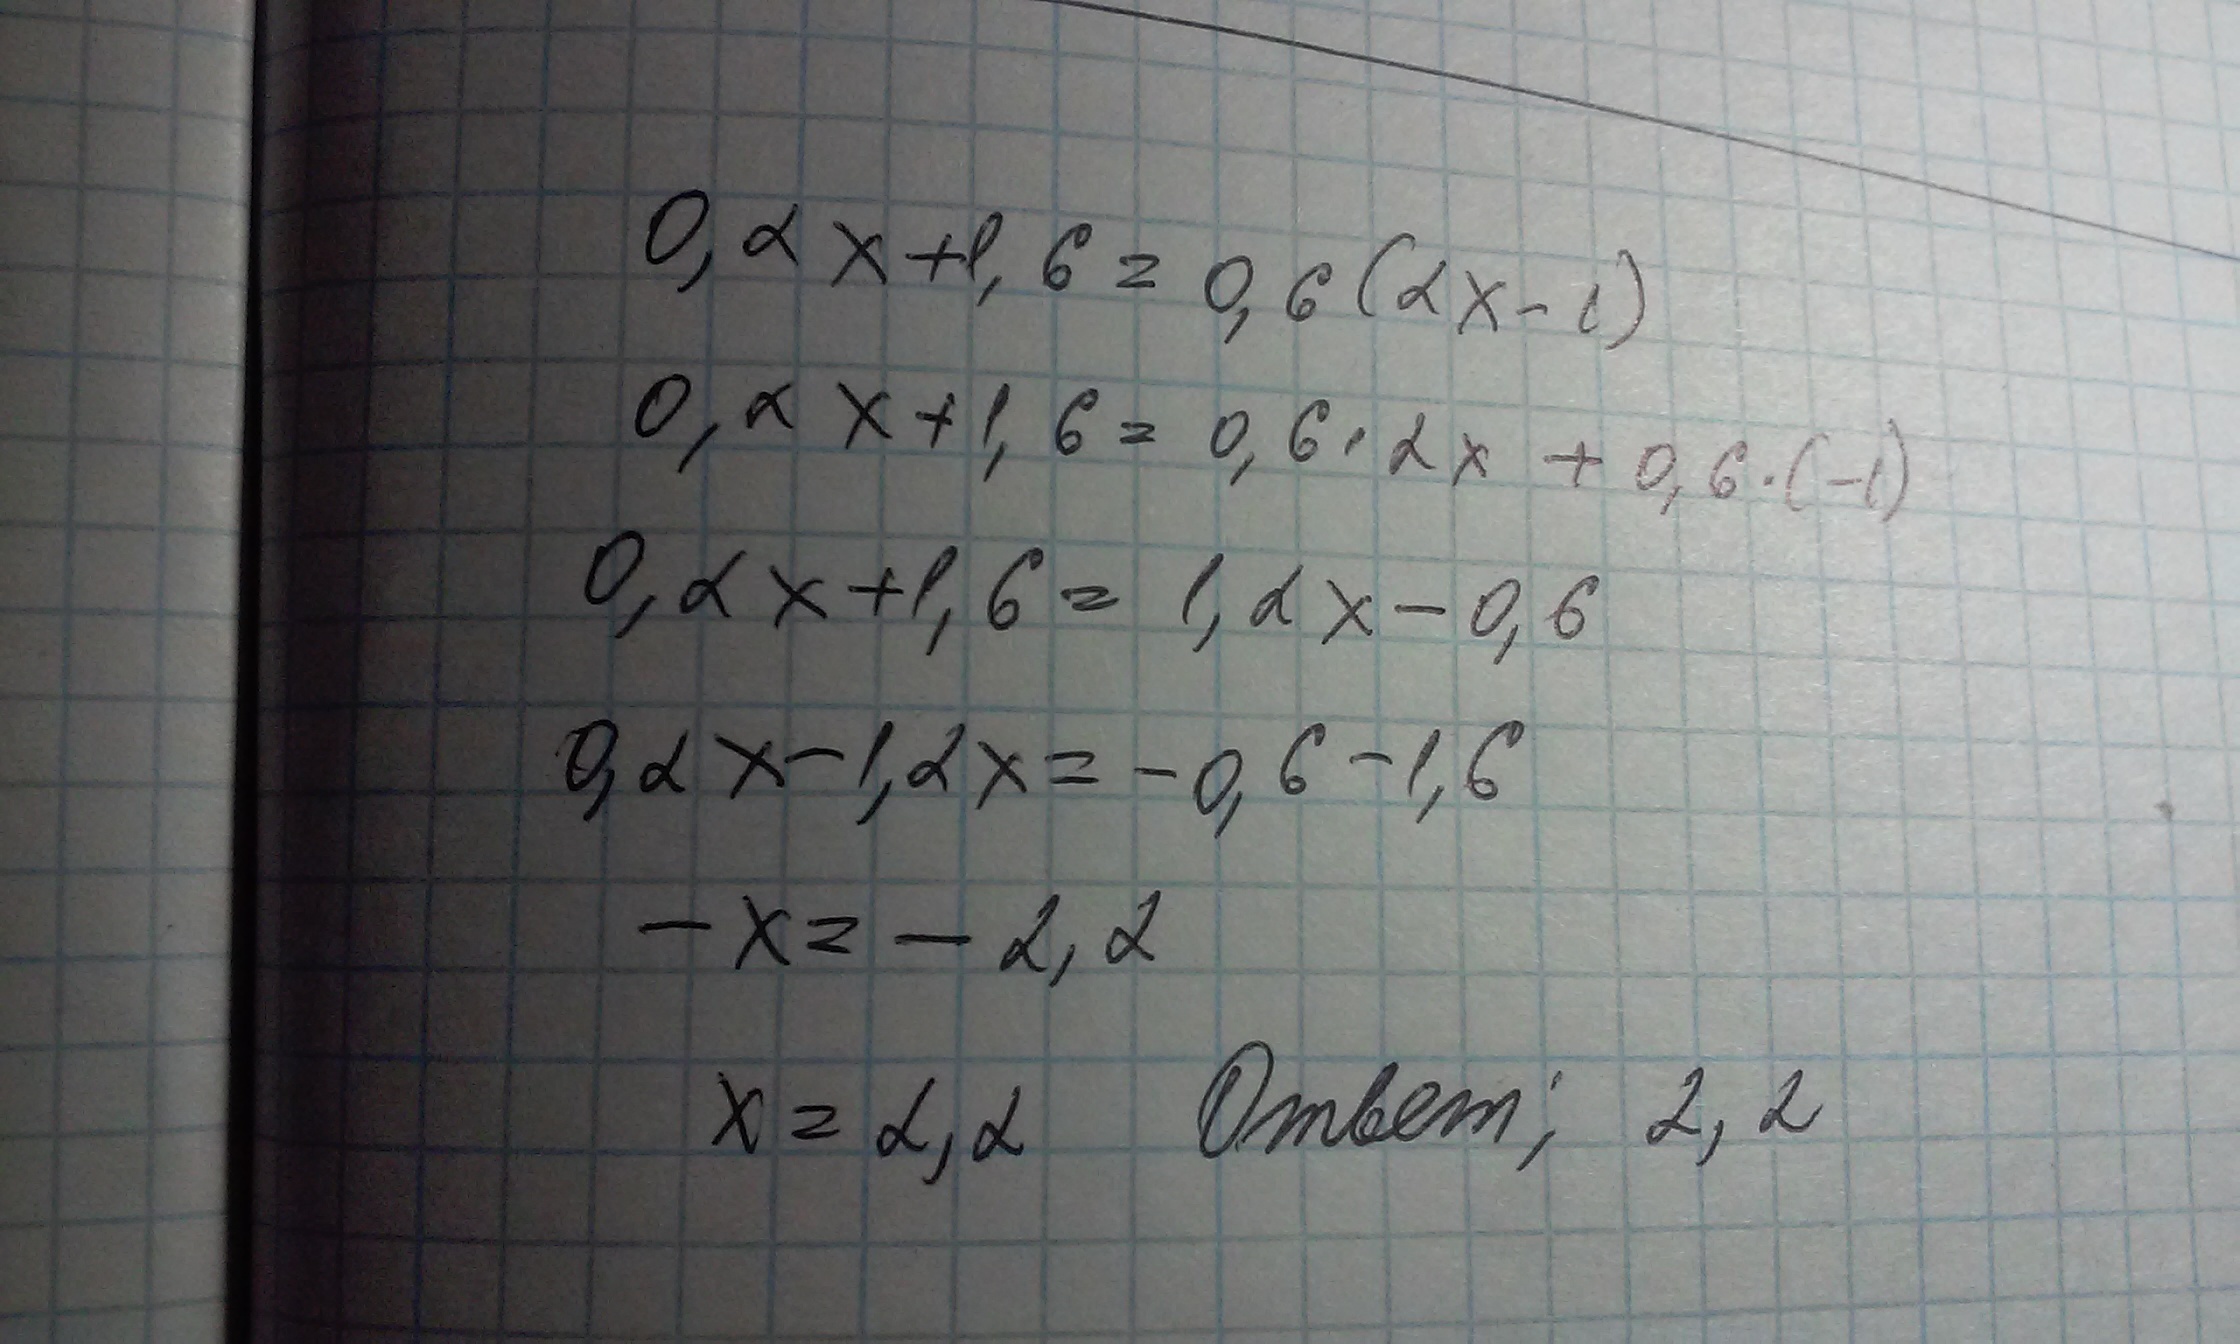 0,2x+1,6=0,6(2x-1)
0,2x+1,6=0,6·2x+0,6·(-1)
0,2x+1,6=1,2x-0,6
0,2x-1,2x=-0,6-1,6
-x=-2,2
x=2,2 Ответ; 2,2